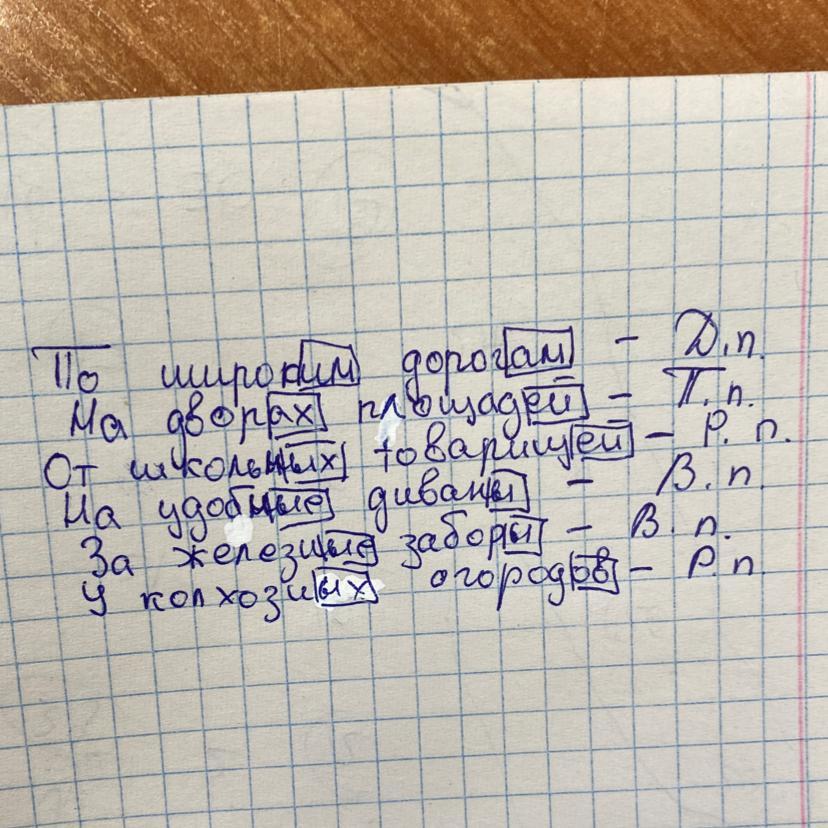 По широким дорогам – Д.п.
На дворах площадей – П.п.
От школьных товарищей – Р.п.
На удобные диваны – В.п.
За железные заборы – В.п.
У колхозных огородов – Р.п